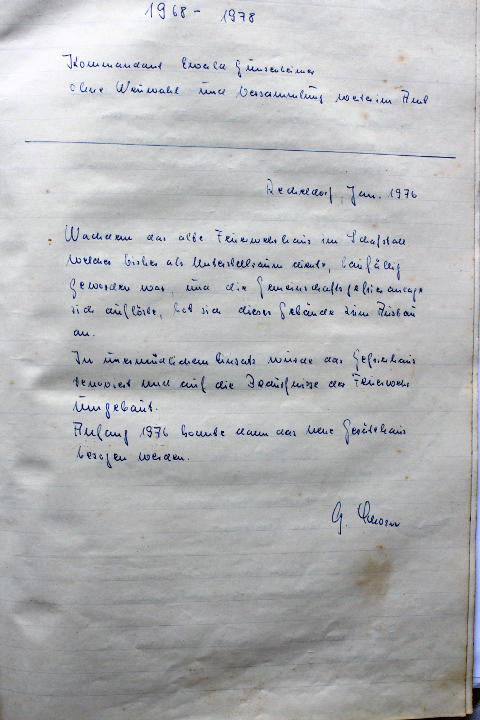 1968 - 1978
Kommandant Ewald Günsenheimer
ohne Neuwahl und Versammlung weiter im Amt
Recheldorf, Jan. 1976
Nachdem das alte Feuerwehrhaus im Schafstall
welches bisher als Unterstellraum diente, baufällig
geworden war, und die Gemeinschaftsgefrieranlage
sich auflöste, bot sich dieses Gebäude zum Ausbau
an.
In unermüdlichem Einsatz wurde das Gefrierhaus
renoviert und auf die Bedürfnisse der Feuerwehr
umgebaut.
Anfang 1976 konnte dann das neue Gerätehaus
bezogen werden.
G.